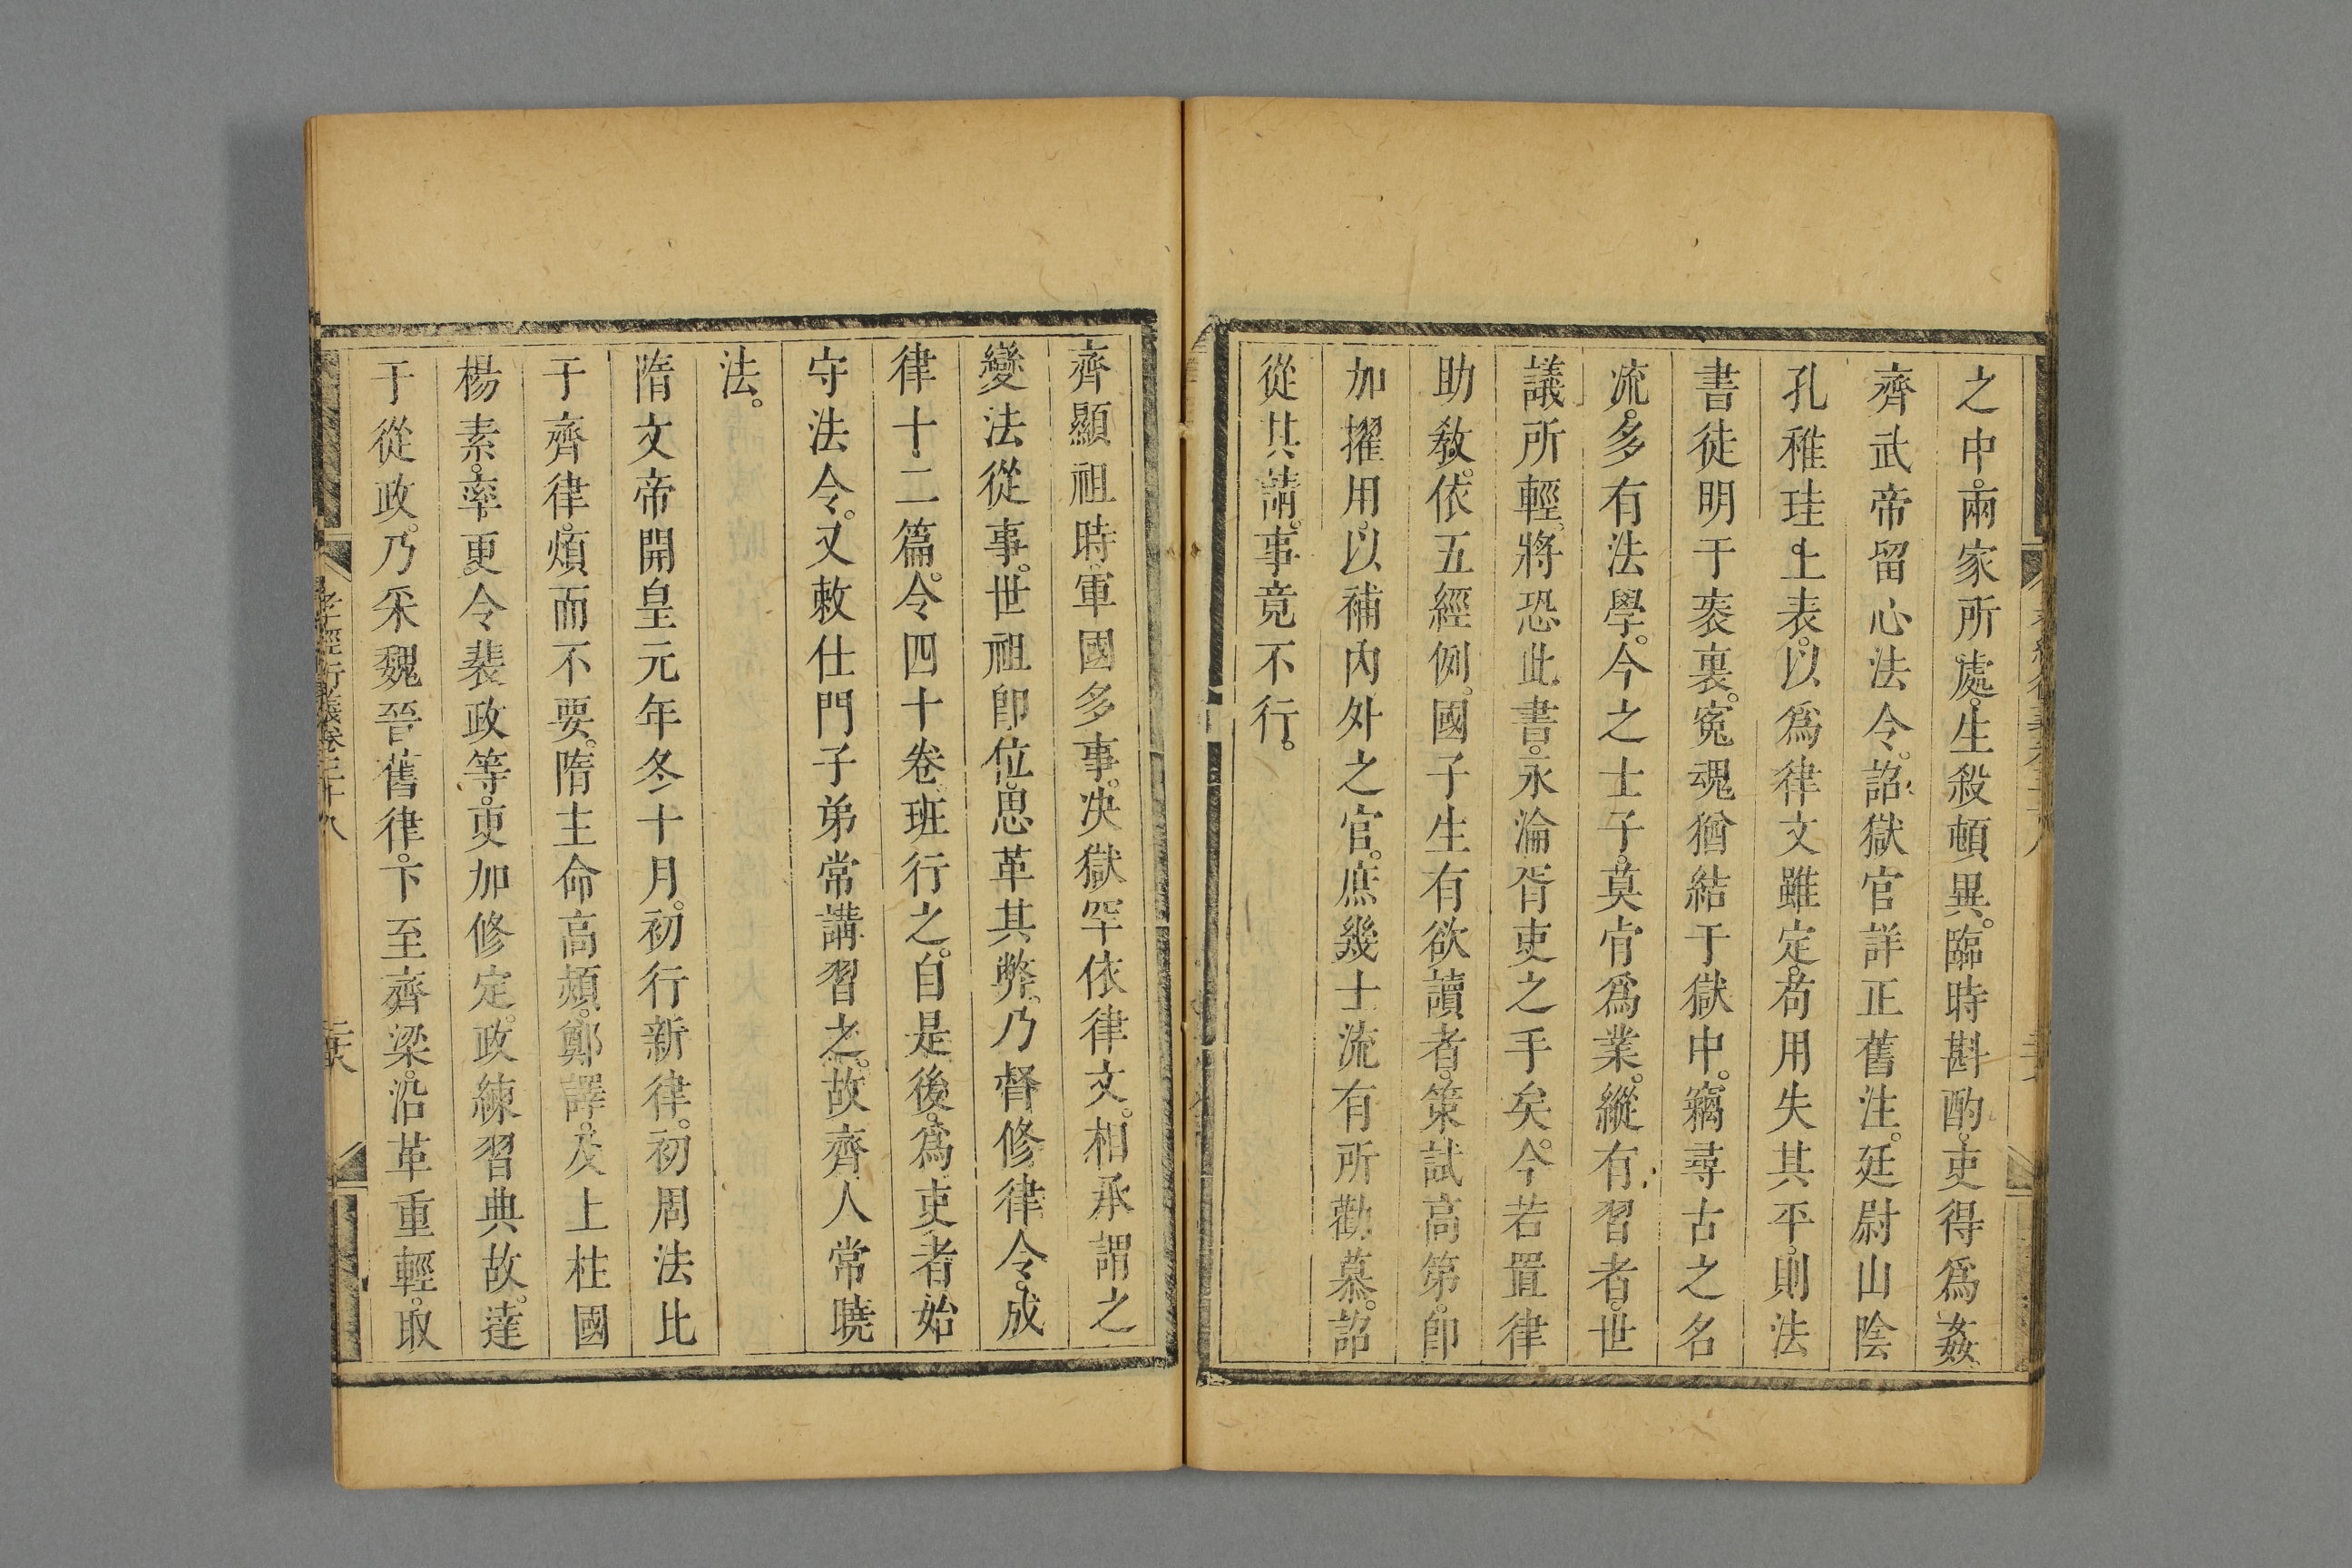 之中。兩家所處。生殺頓異。臨時斟酌。吏得爲姦
齊武帝留心法令。詔獄官詳正舊注。廷尉山陰
孔稚珪上表。以爲律文雖定。苟用失其平。則法
書徒明于袠裏。寃魂猶結于獄中。竊尋古之名
流。多有法學。今之士子。莫肯爲業。縱有習者。世
議所輕。將恐此書。永淪胥吏之手矣。今若置律
助教。依五經例。國子生有欲讀者。策試高第。卽
加擢用。以補內外之官。庶幾士流有所勸慕。詔
從其請。事竟不行。
齊顯祖時。軍國多事。决獄罕依律文。相承謂之
變法從事。世祖卽位。思革其弊。乃督修律令。成
律十二篇。令四十卷。班行之。自是後。爲吏者始
守法令。又敕仕門子弟常講習之。故齊人常曉
法。
隋文帝開皇元年冬十月。初行新律。初周法比
于齊律。煩而不要。隋主命高熲。鄭譯。及上柱國
楊素。率更令裴政等。更加修定。政練習典故。達
于從政。乃采魏晉舊律。下至齊梁。沿革重輕。取
孝經衍義卷三十八